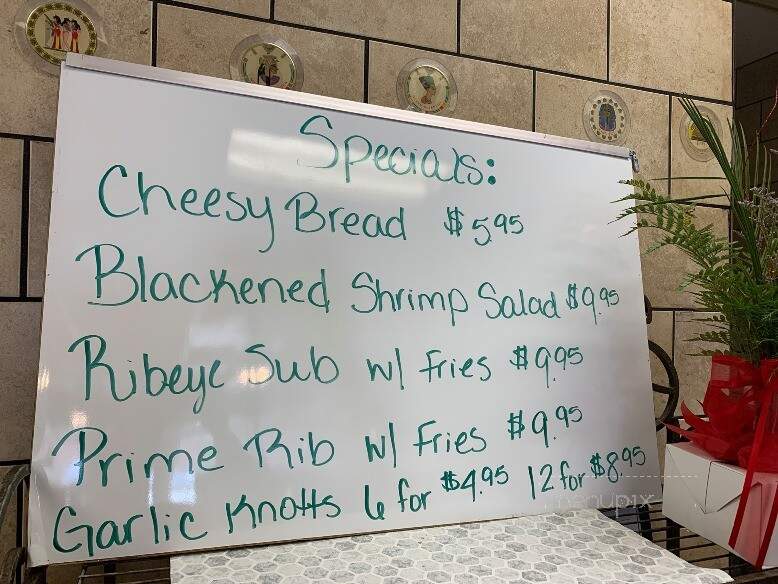 Specials:
Cheesy Bread $5.95
Blackened Shrimp Salad $9.95
Ribeye Sub w/ Fries $9.95
Prime Rib w/ Fries $9.95
Garlic Knotts 6 for $4.95 12 for $8.95
menupix